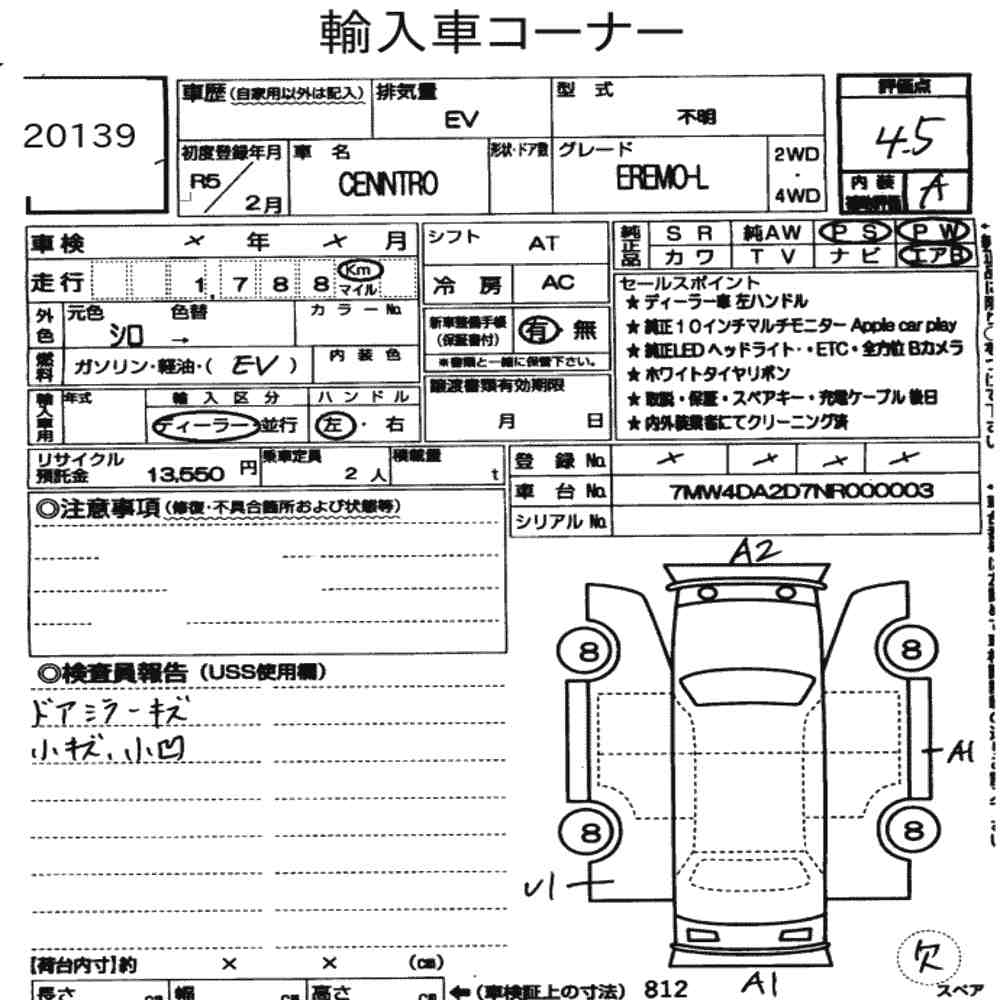 輸入車コーナー
20139
車歴 (自家用以外は記入) 排気量 型 式 評価点
EV 不明 4.5
初度登録年月 車 名 形状・ドア数 グレード 2WD
R5 2月 CENNTRO EREMO-L ・ 4WD
内 装 A
車検 × 年 × 月 シフト AT
純正品 SR 純AW PS PW
カワ TV ナビ エアB
走行 1,788 Km マイル
冷 房 AC
セールスポイント
★ ディーラー車 左ハンドル
★ 純正10インチマルチモニター Apple car play
★ 純正LEDヘッドライト・・ETC・全方位 Bカメラ
★ ホワイトタイヤリボン
★ 取説・保証・スペアキー・充電ケーブル 後日
★ 内外装業者にてクリーニング済
外色 元色 シロ → 色替 カラーNo.
新車整備手帳 (保証書付) 有・無
※書類と一緒に保管下さい。
燃料 ガソリン・軽油・( EV ) 内装色
譲渡書類有効期限
月 日
輸入車用 年式 輸入区分 ハンドル
ディーラー 並行 左・右
リサイクル預託金 13,550 円 乗車定員 2 人 積載量 t
登 録 No. × × × ×
車 台 No. 7MW4DA2D7NR000003
シリアル No.
◎注意事項 (修復・不具合箇所および状態等)
◎検査員報告 (USS使用欄)
ドアミラーキズ
小キズ、小凹
A2
8 8
A1
8 8
U1
A1
欠
スペア
【荷台内寸】約 × × (cm)
長さ cm 幅 cm 高さ cm ←(車検証上の寸法) 812